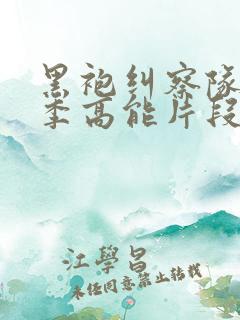 黑袍纠察队
季高能片段
江學昌
未经同意禁止转载